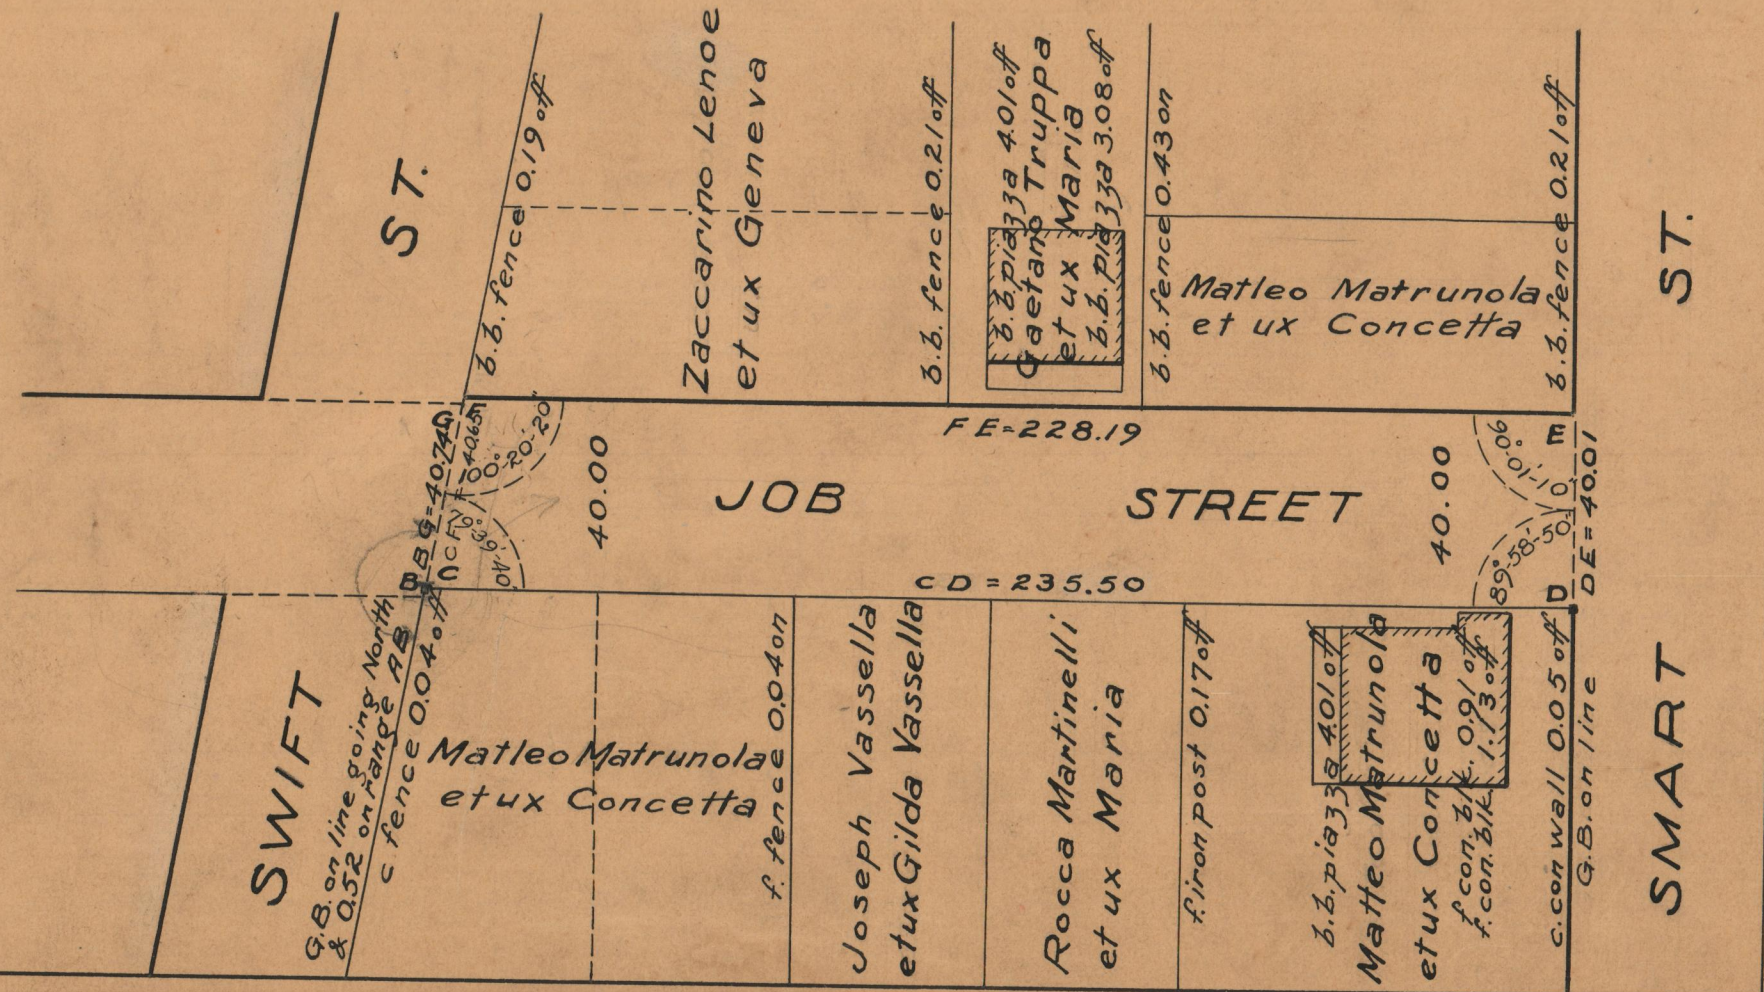 ST.
b.b. fence 0.19 off
Zaccarino Lenoe
et ux Geneva
b.b. fence 0.21 off
b.b. piazza 4.01 off
Gaetano Truppa
et ux Maria
b.b. piazza 3.08 off
b.b. fence 0.43 on
Matleo Matrunola
et ux Concetta
b.b. fence 0.21 off
ST.
G
F
BG=40.74
CF=40.65
100°-20'-20"
79°-39'-40"
B
C
40.00
FE=228.19
JOB STREET
CD=235.50
40.00
90°-01'-10"
E
DE=40.01
89°-58'-50"
D
SWIFT
G.B. on line going North
& 0.52 on range AB
c fence 0.04 off
Matleo Matrunola
et ux Concetta
f. fence 0.04 on
Joseph Vassella
et ux Gilda Vassella
Rocca Martinelli
et ux Maria
f. iron post 0.17 off
b.b. piazza 4.01 off
Matteo Matrunola
et ux Concetta
f. con. blk. 0.91 off
f. con. blk. 1.13 off
c. con wall 0.05 off
G.B. on line
SMART